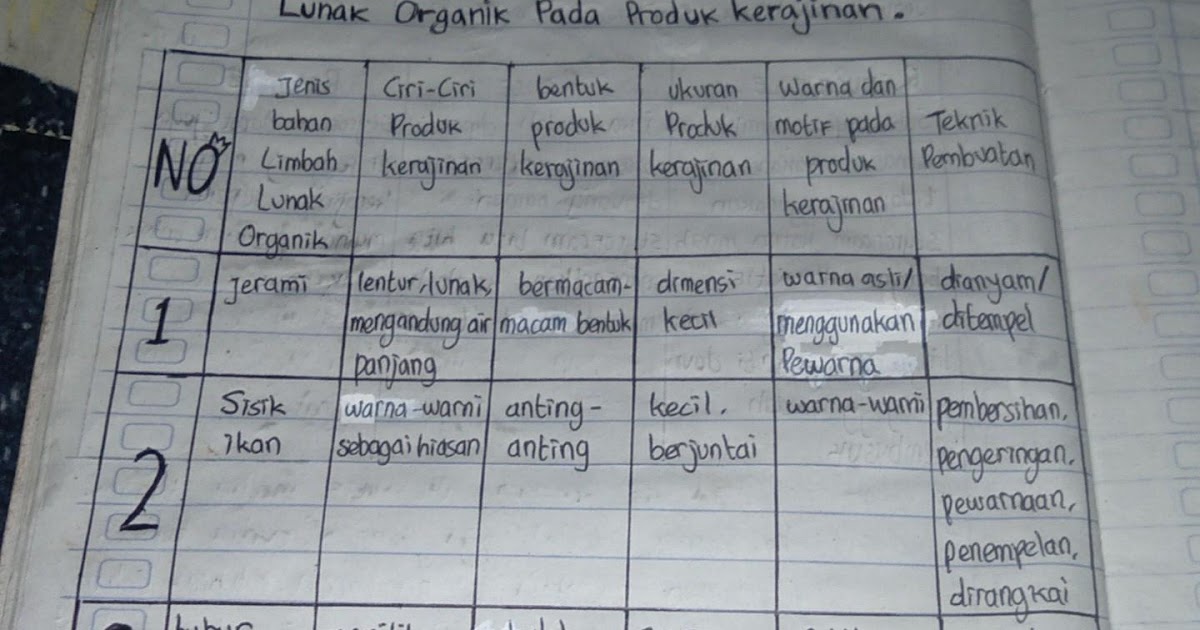 Lunak Organik Pada Produk kerajinan.
NO
Jenis
bahan
Limbah
Lunak
Organik
Ciri-Ciri
Produk
kerajinan
bentuk
produk
kerajinan
ukuran
Produk
kerajinan
warna dan
motif pada
produk
kerajinan
Teknik
Pembuatan
1
Jerami
lentur, lunak,
mengandung air
panjang
bermacam-
macam bentuk
dimensi
kecil
warna asli/
menggunakan
Pewarna
dianyam/
ditempel
2
Sisik
ikan
warna-warni
sebagai hiasan
anting-
anting
kecil,
berjuntai
warna-warni
pembersihan,
pengeringan,
pewarnaan,
penempelan,
dirangkai